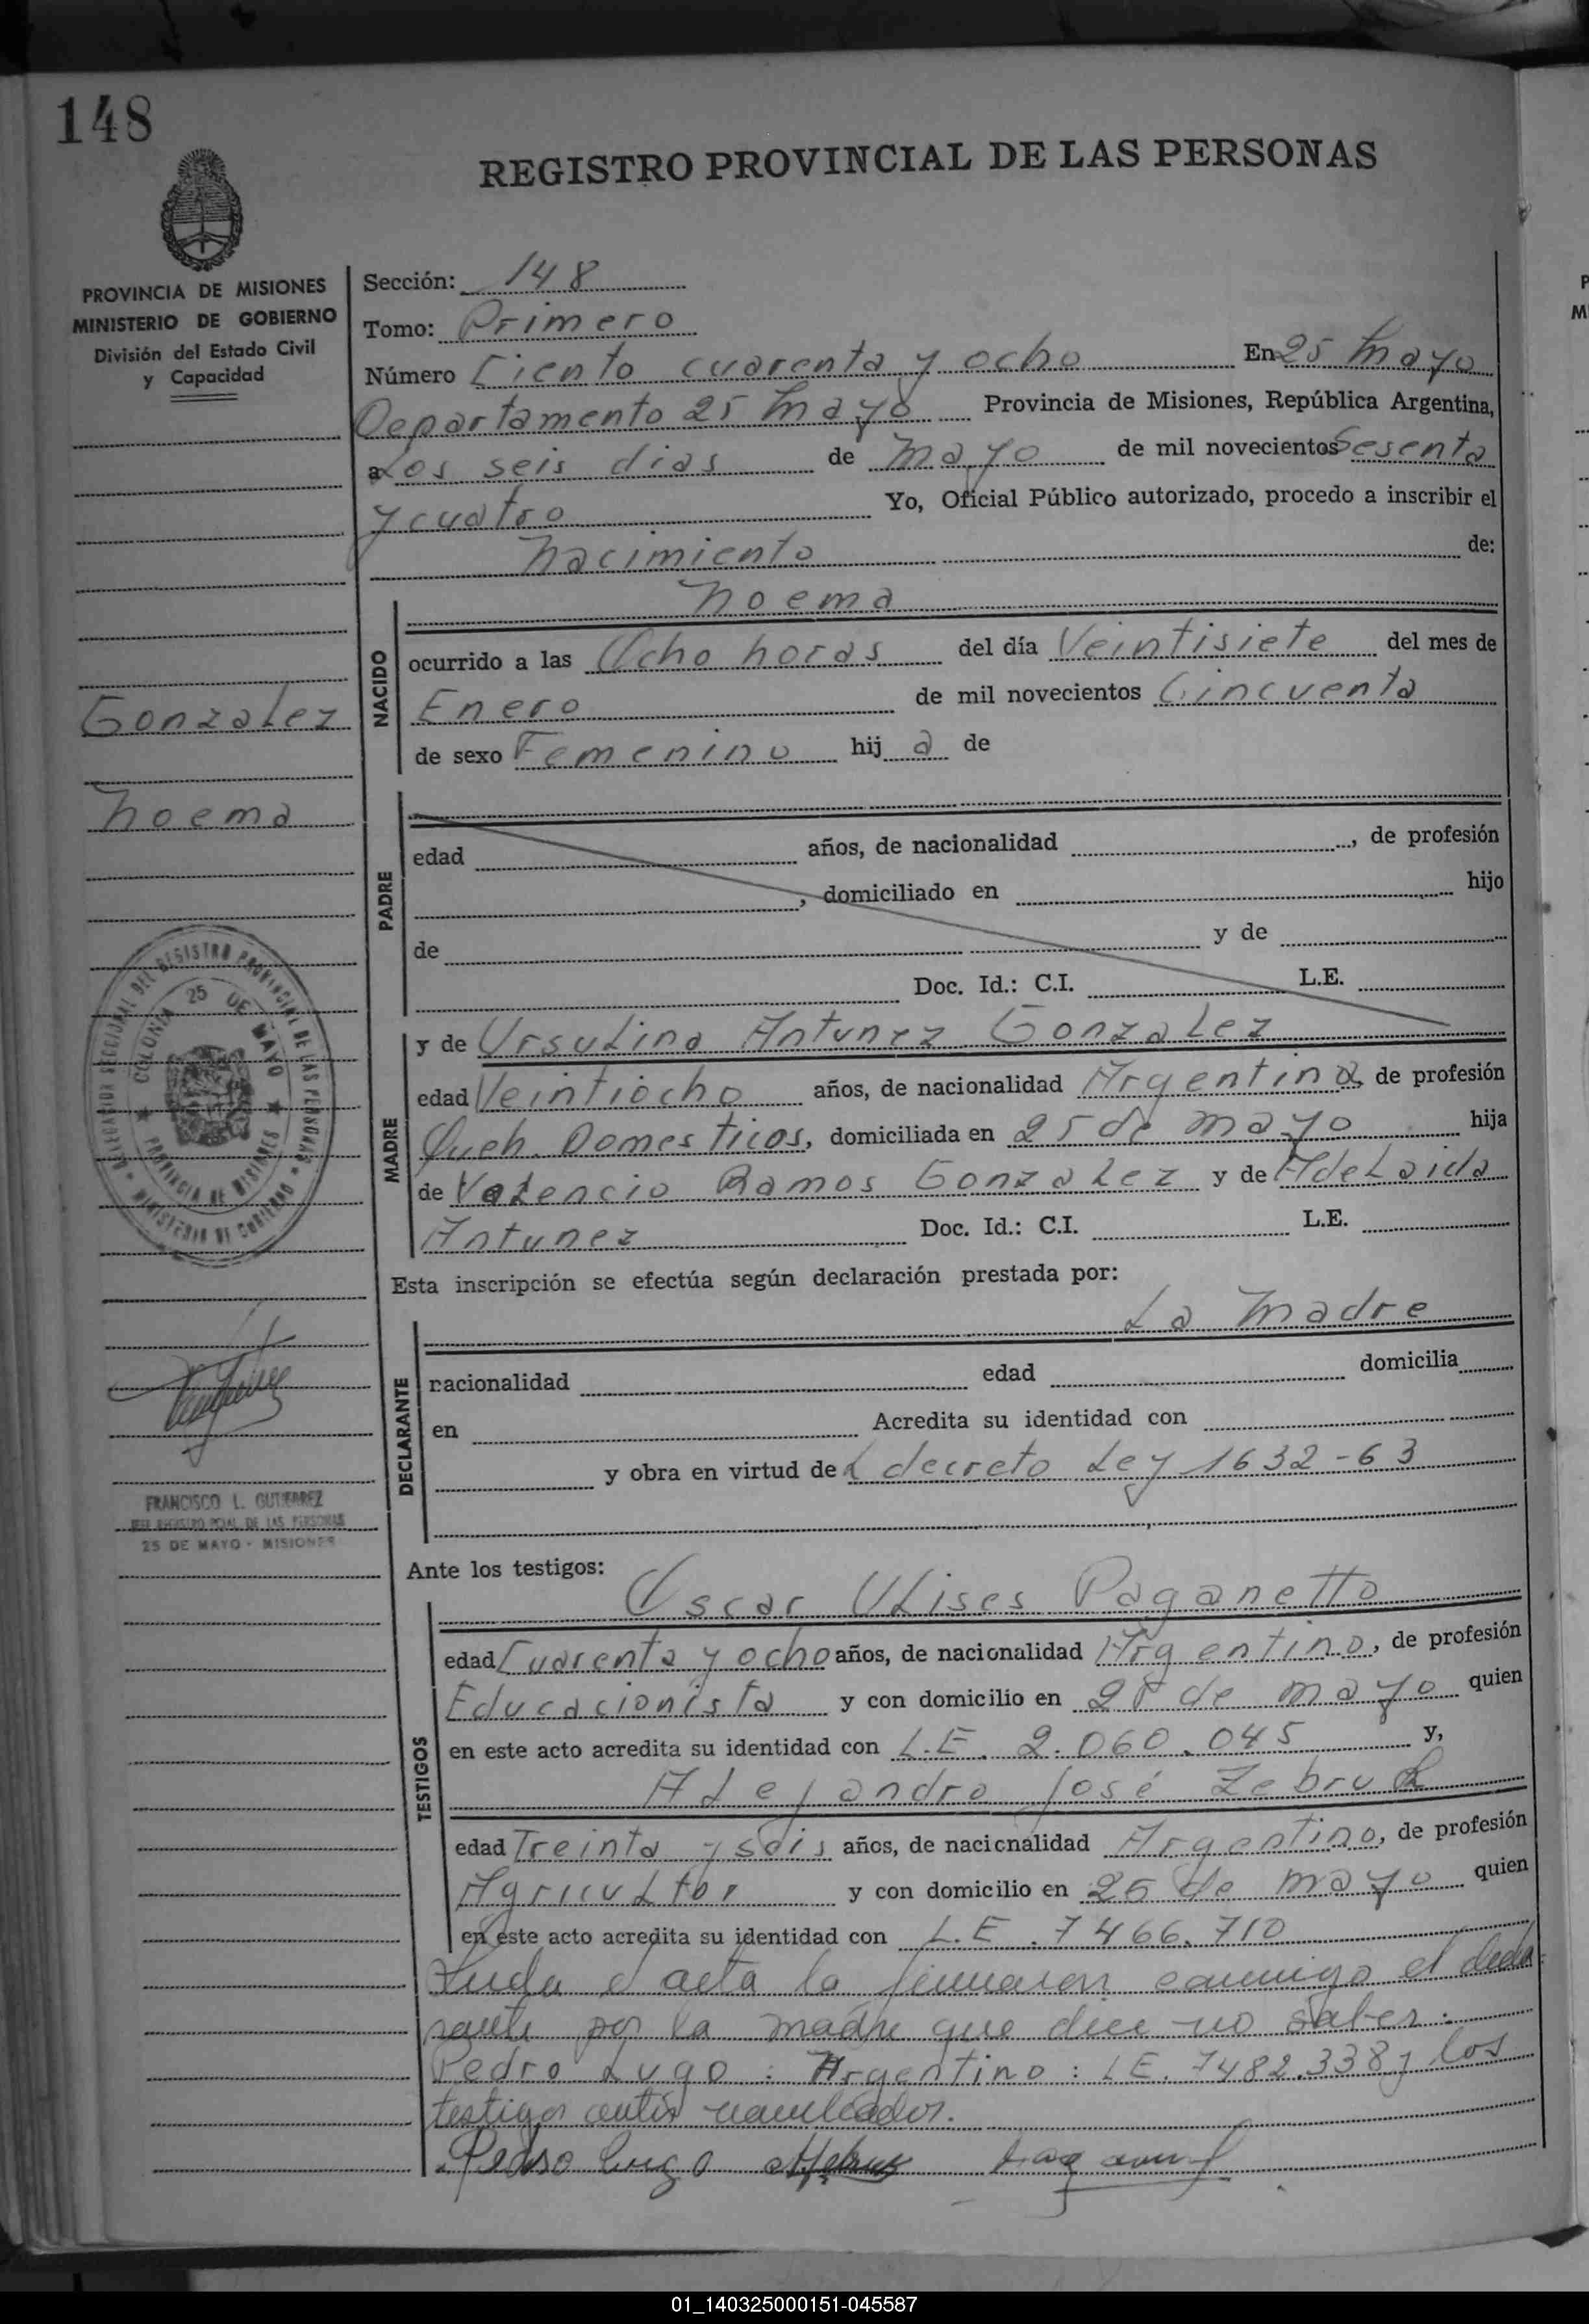 148
REGISTRO PROVINCIAL DE LAS PERSONAS
PROVINCIA DE MISIONES
MINISTERIO DE GOBIERNO
División del Estado Civil
y Capacidad
Gonzalez
Noema
DELEGACION SECCIONAL DEL REGISTRO PROVINCIAL DE LAS PERSONAS
MINISTERIO DE GOBIERNO
COLONIA 25 DE MAYO
PROVINCIA DE MISIONES
FRANCISCO L. GUTIERREZ
JEFE REGISTRO PCIAL DE LAS PERSONAS
25 DE MAYO - MISIONES
Sección: 148
Tomo: Primero
Número Ciento cuarenta y ocho En 25 Mayo
Departamento 25 Mayo Provincia de Misiones, República Argentina,
a Los seis dias de Mayo de mil novecientos Sesenta
y cuatro Yo, Oficial Público autorizado, procedo a inscribir el
Nacimiento de:
Noema
NACIDO
ocurrido a las Ocho horas del día Veintisiete del mes de
Enero de mil novecientos Cincuenta
de sexo Femenino hij a de
PADRE
edad años, de nacionalidad , de profesión
, domiciliado en hijo
de y de
Doc. Id.: C.I. L.E.
MADRE
y de Ursulina Antunez Gonzalez
edad Veintiocho años, de nacionalidad Argentina, de profesión
Queh. Domesticos, domiciliada en 25 de Mayo hija
de Valencio Ramos Gonzalez y de Adelaida
Antunez Doc. Id.: C.I. L.E.
Esta inscripción se efectúa según declaración prestada por:
La Madre
DECLARANTE
nacionalidad edad domicilia
en Acredita su identidad con
y obra en virtud de L decreto Ley 1632-63
Ante los testigos:
TESTIGOS
Oscar Ulises Paganetto
edad Cuarenta y ocho años, de nacionalidad Argentino, de profesión
Educacionista y con domicilio en 25 de Mayo quien
en este acto acredita su identidad con L.E. 2.060.045 y,
Alejandro José Zebruk
edad Treinta y seis años, de nacionalidad Argentino, de profesión
Agricultor y con domicilio en 25 de Mayo quien
en este acto acredita su identidad con L.E. 7466.710
Leida el acta la firmaron conmigo el decla
rante por la madre que dice no saber.
Pedro Lugo: Argentino: LE. 7482.338 y los
testigos antes nombrados.
Pedro Lugo
01_140325000151-045587